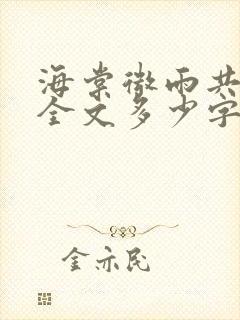 海棠微雨共
全文多少字
金亦民